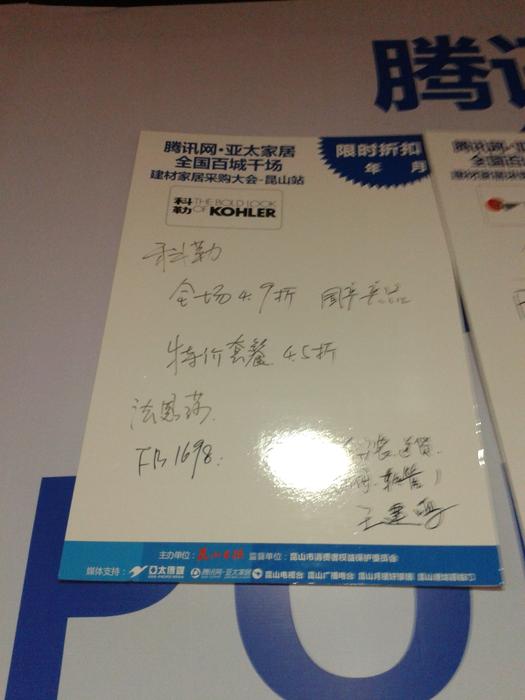 腾讯
腾讯网·亚太家居
全国百城千场
建材家居采购大会-昆山站
限时折扣
年 月
科勒 THE BOLD LOOK OF KOHLER
科勒
全场4.9折
特价套餐 4.5折
法恩莎
FB1698.
安装.送货.
软管)
主办单位: 昆山日报 监督单位: 昆山市消费者权益保护委员会
媒体支持: 亚太传媒 腾讯网·亚太家居 昆山电视台 昆山广播电台
PO